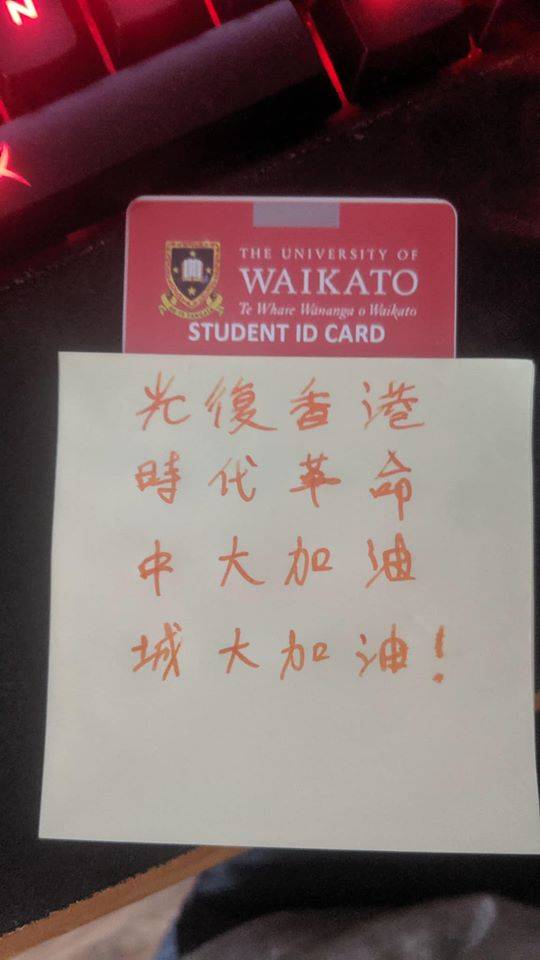 THE UNIVERSITY OF
WAIKATO
Te Whare Wānanga o Waikato
STUDENT ID CARD
光復香港
時代革命
中大加油
城大加油!